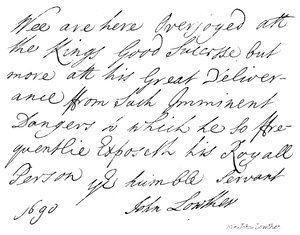 Wee are here Overjoyed att
the Kings Good Success but
more att his Great Deliver-
ance ffrom Such Imminent
Dangers to which he so ffre-
quentlie Exposeth his Royall
Person yr humble Servant
1690 John Lowther